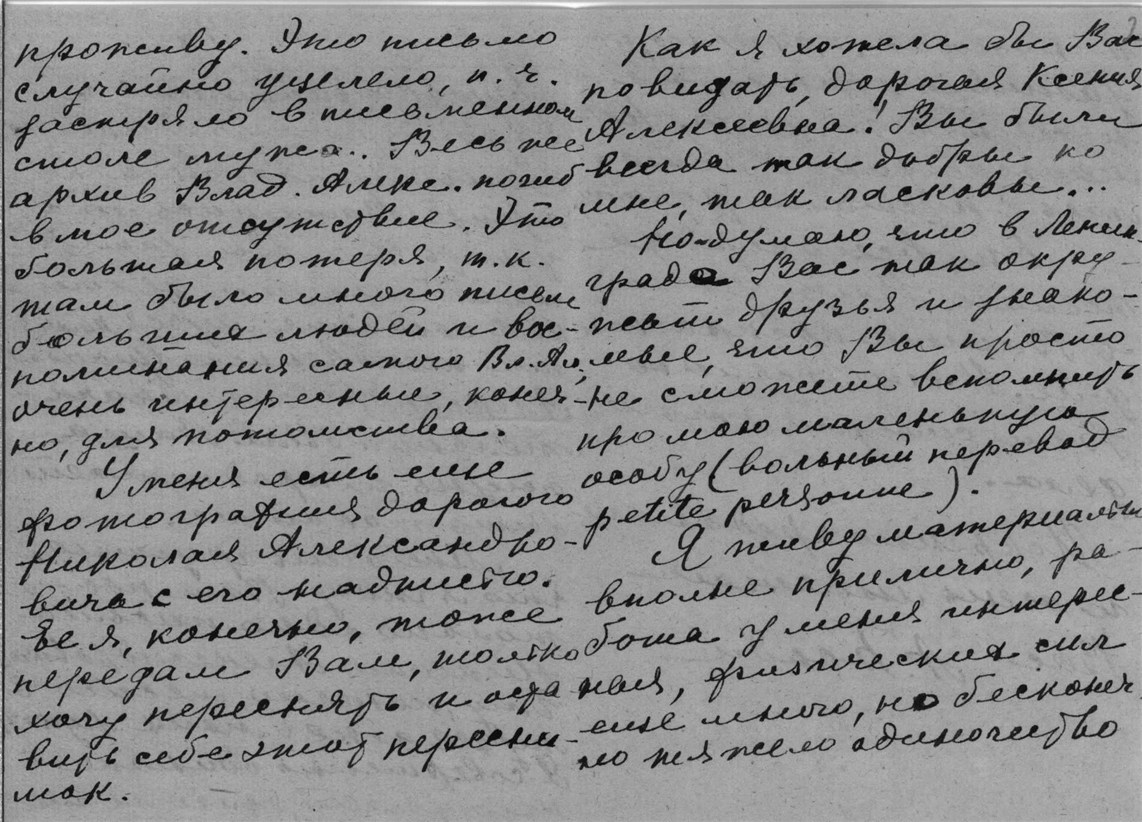 проживу. Это письмо
случайно уцелело, п. ч.
застряло в письменном
столе мужа. Весь же
архив Влад. Алекс. погиб
в мое отсутствие. Это
большая потеря, т.к.
там было много писем
больших людей и вос-
поминания самого Вл. Ал.,
очень интересные, конеч-
но, для потомства.
У меня есть еще
фотография дорогого
Николая Александро-
вича с его надписью.
Ее я, конечно, тоже
передам Вам, только
хочу переснять и оста
вить себе этот пересни-
мок.
Как я хотела бы Вас
повидать, дорогая Ксения
Алексеевна! Вы были
всегда так добры ко
мне, так ласковы...
Но думаю, что в Ленин
граде Вас так окру-
жают друзья и знако-
мые, что Вы просто
не сможете вспомнить
про мою маленькую
особу (вольный перевод
petite personne).
Я живу материально
вполне прилично, ра-
бота у меня интерес-
ная, физических сил
еще много, но бесконеч
но тяжело одиночество